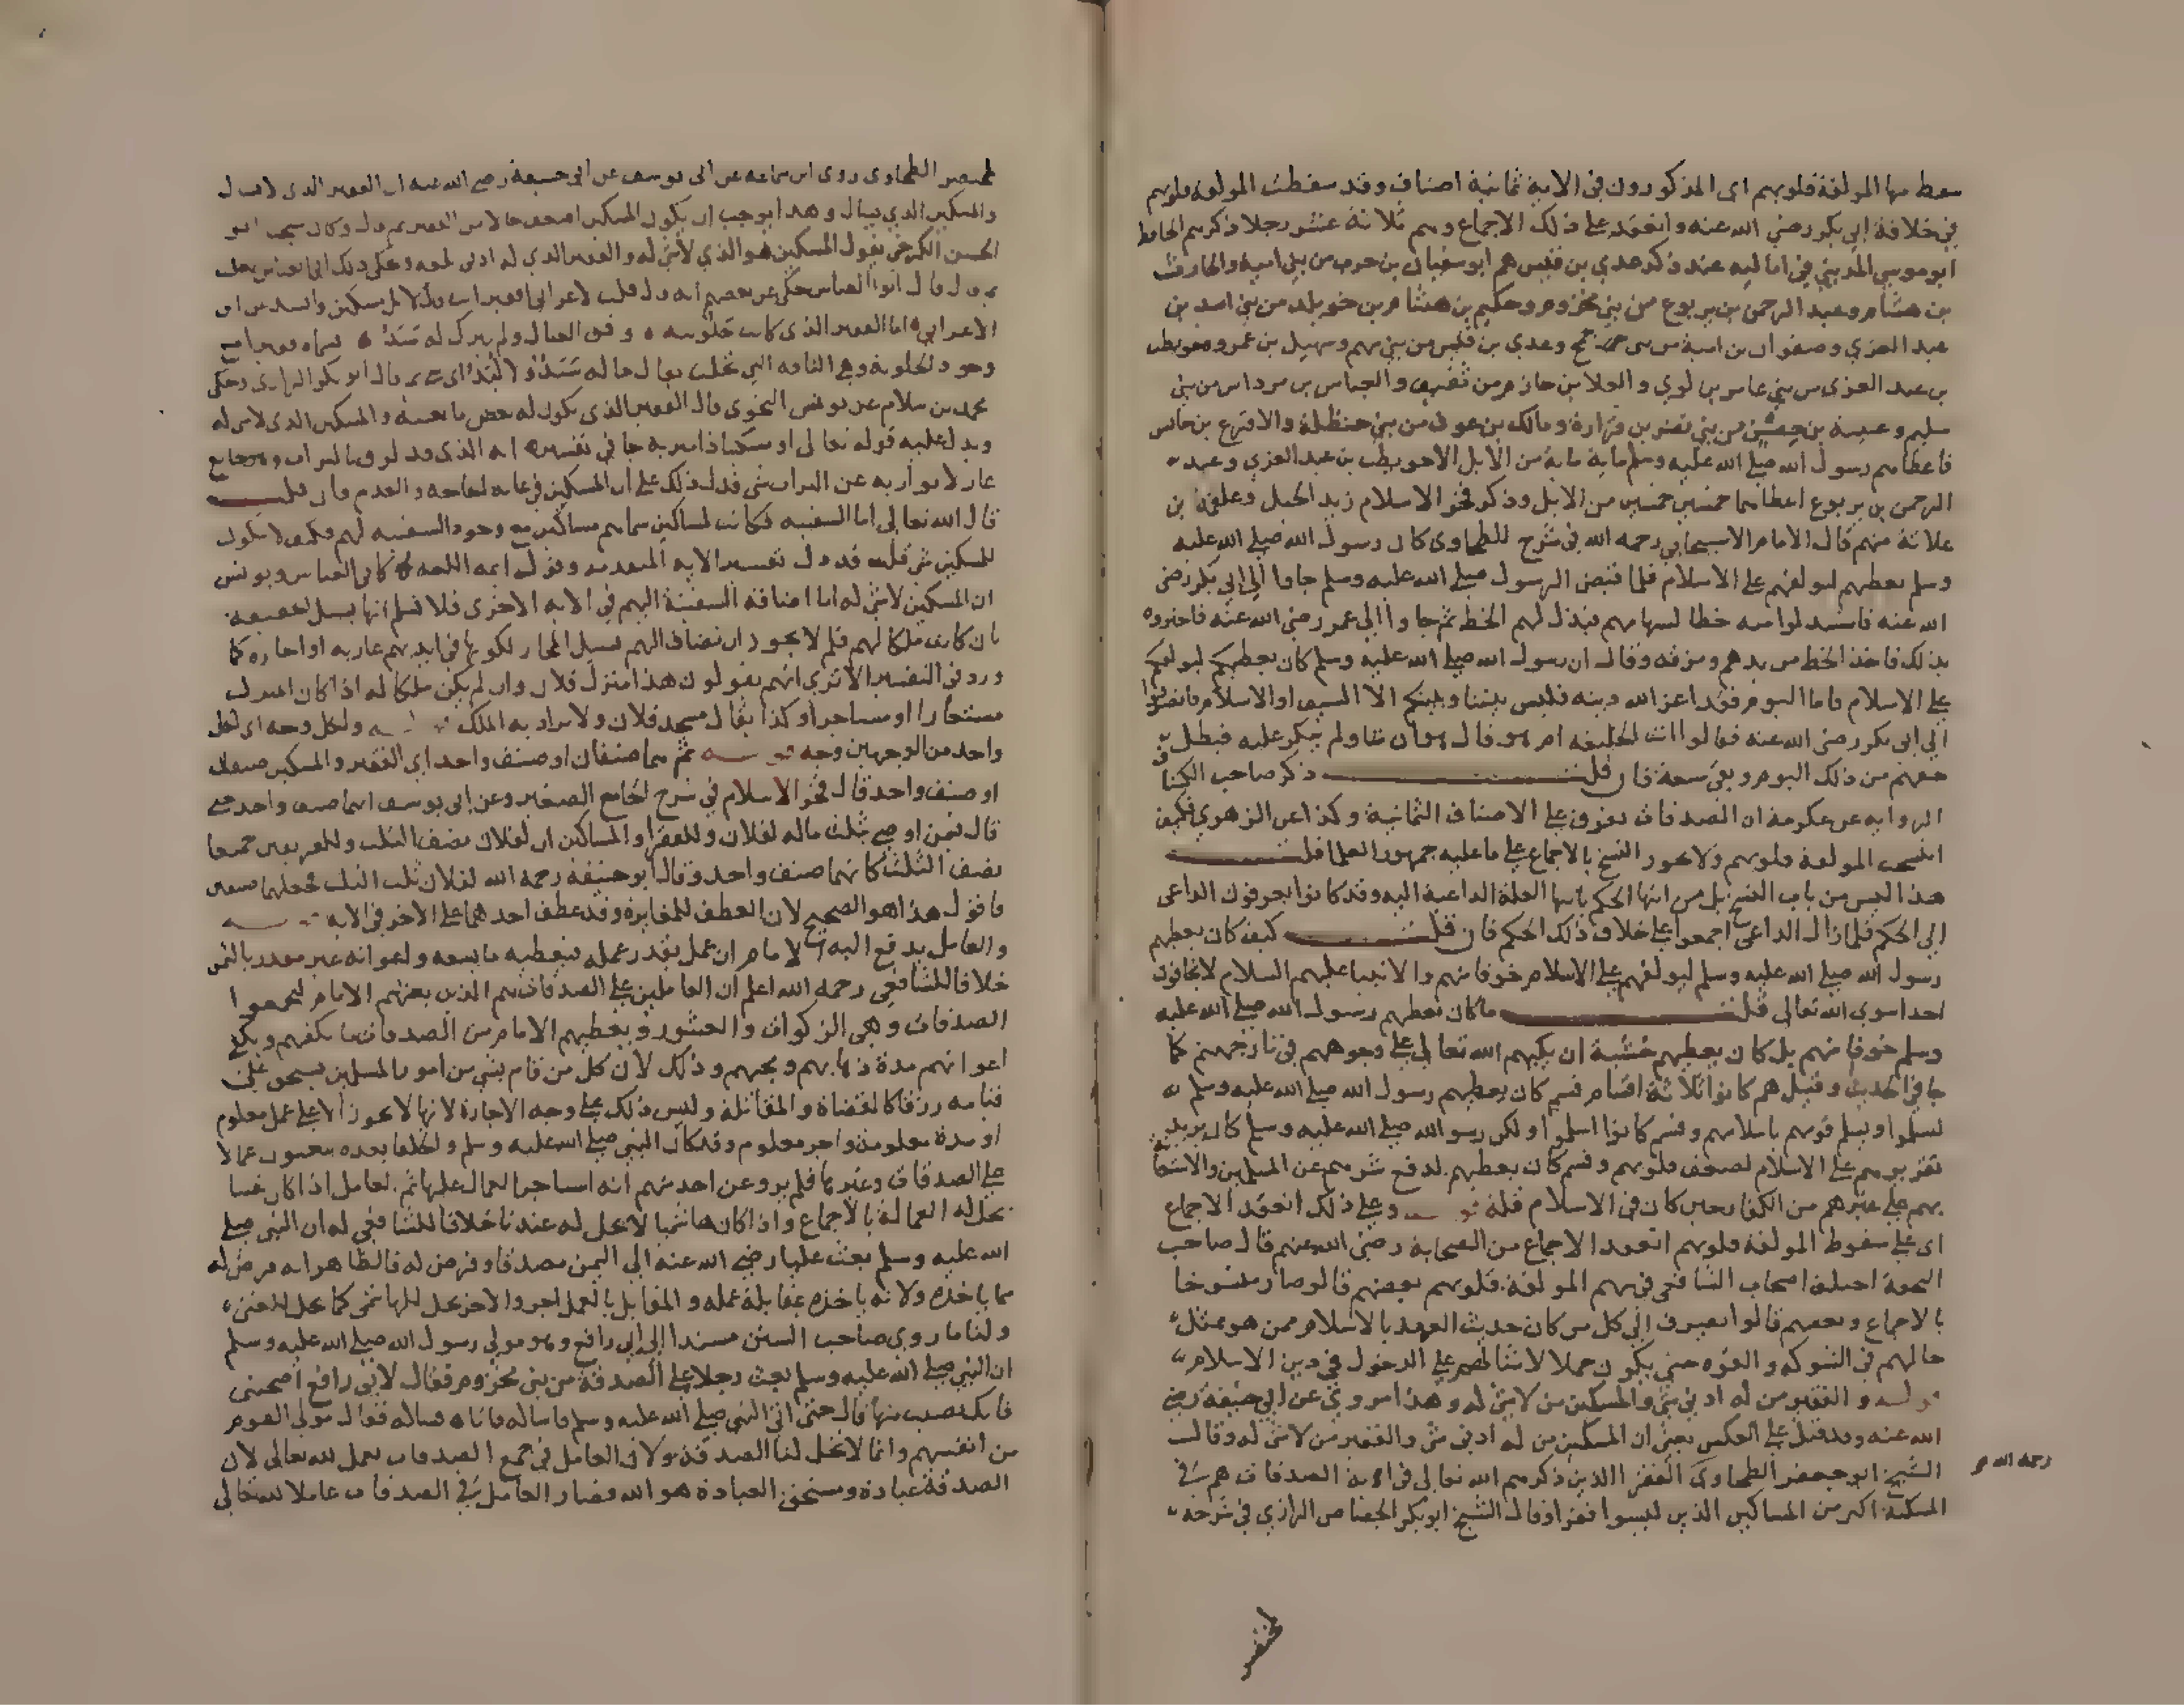 سقط منها المولفة قلوبهم اى المذكورون فى الاية ثمانية اصناف وقد سقطت المولفة قلوبهم
في خلافة ابي بكر رضي الله عنه وانعقد على ذلك الاجماع وهم ثلاثة عشر رجلا ذكرهم الحافظ
ابو موسي المديني في اماليه عند ذكر عدي بن قيس هم ابو سفيان بن حرب من بني امية والحارث
بن هشام وعبد الرحمن بن يربوع من بني مخزوم وحكيم بن هشام بن خويلد من بني اسد بن
عبد العزي وصفوان بن امية من بنى جمح وعدي بن قيس من بني سهم وسهيل بن عمرو وحويطب
بن عبد العزى من بني عامر بن لوي والعلا بن حازم من ثقيف والعباس بن مرداس من بني
سليم وعيينة بن حصن من بني نضر بن فزارة ومالك بن عوف من بني حنظلة والاقرع بن حابس
فاعطاهم رسول الله صلى الله عليه وسلم ماية ماية من الابل الا حويطب بن عبد العزي وعبد
الرحمن بن يربوع اعطاهما خمسين خمسين من الابل وذكر فخر الاسلام زيد الخيل وعلقمة بن
علاثة منهم قال الامام الاسبيجابي رحمه الله في شرح الطحاوى كان رسول الله صلى الله عليه
وسلم يعطيهم ليولفهم على الاسلام فلما قبض الرسول صلى الله عليه وسلم جاوا الي ابي بكر رضى
الله عنه فاستبدلوا منه خطا لسهامهم فبذل لهم الخط ثم جاوا الى عمر رضى الله عنه فاخبروه
بذلك فاخذ الخط من يدهم ومزقه وقال ان رسول الله صلى الله عليه وسلم كان يعطيهم ليولفكم
على الاسلام فاما اليوم فقد اعز الله دينه فليس بيننا وبينكم الا السيف او الاسلام فانصرفوا
الي ابى بكر رضى الله عنه فقالوا انت الخليفة ام هو قال هو ان شا ولم ينكر عليه فبطل
حقهم من ذلك اليوم وبقى سبعة فان قلت ذكر صاحب الكشاف
الرواية عن عكرمة ان الصدقات تفرق على الاصناف الثمانية وكذا عن الزهري فكيف
انتسخ المولفة قلوبهم ولا يجوز النسخ بالاجماع على ما عليه جمهور العلما قلت
هذا ليس من باب النسخ بل من انتها الحكم بانتها العلة الداعية اليه وقد كانوا يعرفون الداعى
الى الحكم فلما زال الداعي اجمعوا على خلاف ذلك الحكم فان قلت كيف كان يعطيهم
رسول الله صلى الله عليه وسلم ليولفهم على الاسلام خوفا منهم والانبيا عليهم السلام لا يخافون
احدا سوى الله تعالى قلت ما كان يعطيهم رسول الله صلى الله عليه
وسلم خوفا منهم بل كان يعطيهم خشية ان يكبهم الله تعالى على وجوههم في نار جهنم كما
جا في الحديث وقيل هم كانوا ثلاثة اقسام قسم كان يعطيهم رسول الله صلى الله عليه وسلم
ليسلموا ويسلم قومهم باسلامهم وقسم كانوا اسلموا ولكن رسول الله صلى الله عليه وسلم كان يريد
تقريرهم على الاسلام لضعف قلوبهم وقسم كان يعطيهم لدفع شرهم عن المسلمين والاستعانة
بهم على غيرهم من الكفار حين كان في الاسلام قلة قوله وعلى ذلك انعقد الاجماع
اى على سقوط المولفة قلوبهم انعقد الاجماع من الصحابة رضى الله عنهم قال صاحب
التحفة اختلف اصحاب الشافعي في سهم المولفة قلوبهم بعضهم قالوا صار منسوخا
بالاجماع وبعضهم قالوا يصرف الى كل من كان حديث العهد بالاسلام ممن هو مثل
حالهم في الشوكة والقوة حتى يكون حملا لامثالهم على الدخول في دين الاسلام
قوله والفقير من له ادنى شي والمسكين من لا شي له وهذا مروي عن ابي حنيفة رضي
الله عنه وقد قيل على العكس يعني ان المسكين من له ادنى شي والفقير من لا شي له وقال
الشيخ ابو جعفر الطحاوى الفقرا الذين ذكرهم الله تعالى في اية الصدقات هم في
رحمه الله
المسكنة اكبر من المساكين الذين ليسوا فقرا وقال الشيخ ابو بكر الجصاص الرازي في شرحه
لمختصر
لمختصر الطحاوى روى ابن سماعه عن ابى يوسف عن ابى حنيفة رضي الله عنه ان الفقير الذى لا يسال
والمسكين الذي يسال وهذا يوجب ان يكون المسكين اضعف حالا من الفقير ثم قال وكان شيخنا ابو
الحسن الكرخي يقول المسكين هو الذي لا شي له والفقير الذي له ادنى بلغه وحكى ذلك ابى العباس ثعلب
قال وقال ابو العباس حكى عن بعضهم انه قال قلت لاعرابى افقير انت قال لا بل مسكين وانشد عن ابن
الاعرابي اما الفقير الذى كانت حلوبته وفق العيال ولم يترك له سبد فسماه فقيرا مع
وجود الحلوبة وهى الناقة التي تحلب يقال ما له سبد ولا لبد اى شي ثم قال ابو بكر الرازي وحكى
محمد بن سلام عن يونس النحوى قال الفقير الذى يكون له بعض ما يقيته والمسكين الذى لا شي له
ويدل عليه قوله تعالى او مسكينا ذا متربة جا في تفسيره انه الذى قد لزق بالتراب وهو جايع
عار لا يواريه عن التراب شي فدل ذلك على ان المسكين في غاية الحاجة والعدم فان قلت
قال الله تعالى اما السفينة فكانت لمساكين سماهم مساكين مع وجود السفينة لهم فكيف لا يكون
للمسكين شي قلت قد دل تفسير الاية المتقدمة وقول ايمة اللغة كابى العباس ويونس
ان المسكين لا شي له اما اضافة السفينة اليهم في الاية الاخرى فلا نسلم انها بسبيل الحقيقة
بان كانت ملكا لهم فلم لا يجوز ان تضاف اليهم بسبيل المجاز لكونها في ايديهم عارية او اجارة كما
ورد في التفسير الا ترى انهم يقولون هذا منزل فلان وان لم يكن ملكا له اذا كان المنزل
مستعارا او مستاجرا وكذا يقال مسجد فلان ولا يراد به الملك قوله ولكل وجه اى لكل
واحد من الوجهين وجه قوله ثم هما صنفان او صنف واحد اى الفقير والمسكين صنفان
او صنف واحد قال فخر الاسلام في شرح الجامع الصغير وعن ابى يوسف انهما صنف واحد حتى
قال فيمن اوصى بثلث ماله لفلان وللفقرا والمساكين ان لفلان نصف الثلث وللفريقين جميعا
نصف الثلث كانهما صنف واحد وقال ابو حنيفة رحمه الله لفلان ثلث الثلث فجعلهما صنفين
فاقول هذا هو الصحيح لان العطف للمغايرة وقد عطف احدهما على الاخر في الاية قوله
والعامل يدفع اليه الامام ان عمل بقدر عمله فيعطيه ما يسعه واعوانه غير مقدر بالثمن
خلافا للشافعي رحمه الله اعلم ان العاملين على الصدقات هم الذين بعثهم الامام ليجمعوا
الصدقات وهى الزكوات والعشور ويعطيهم الامام من الصدقات ما يكفيهم ويكفى
اعوانهم مدة ذهابهم ومجيهم وذلك لان كل من قام بشي من امور المسلمين يستحق على
قيامه رزقا كالقضاة والمقاتلة وليس ذلك على وجه الاجارة لانها لا تجوز الا على عمل معلوم
او مدة معلومة واجر معلوم وقد كان النبي صلى الله عليه وسلم والخلفا بعده يبعثون عمالا
على الصدقات وغيرها فلم يرو عن احد منهم انه استاجر العمال عليها ثم العامل اذا كان غنيا
يحل له العمالة بالاجماع واذا كان هاشميا لا يحل له عندنا خلافا للشافعي له ان النبي صلى
الله عليه وسلم بعث عليا رضي الله عنه الى اليمن مصدقا وفرض له فالظاهر انه فرض له
مما ياخذه ولانه ياخذه بمقابلة عمله والمقابل بالعمل اجر والاجر يحل للهاشمي كما يحل للغني
ولنا ما روى صاحب السنن مسندا الى ابي رافع وهو مولى رسول الله صلى الله عليه وسلم
ان النبي صلى الله عليه وسلم بعث رجلا على الصدقة من بني مخزوم فقال لابى رافع اصحبنى
فانك تصيب منها قال حتى اتى النبي صلى الله عليه وسلم فاساله فاتاه فساله فقال مولى القوم
من انفسهم وانا لا تحل لنا الصدقة ولان العامل في جمع الصدقات يعمل لله تعالى لان
الصدقة عبادة ومستحق العبادة هو الله فصار العامل في الصدقات عاملا لله تعالى